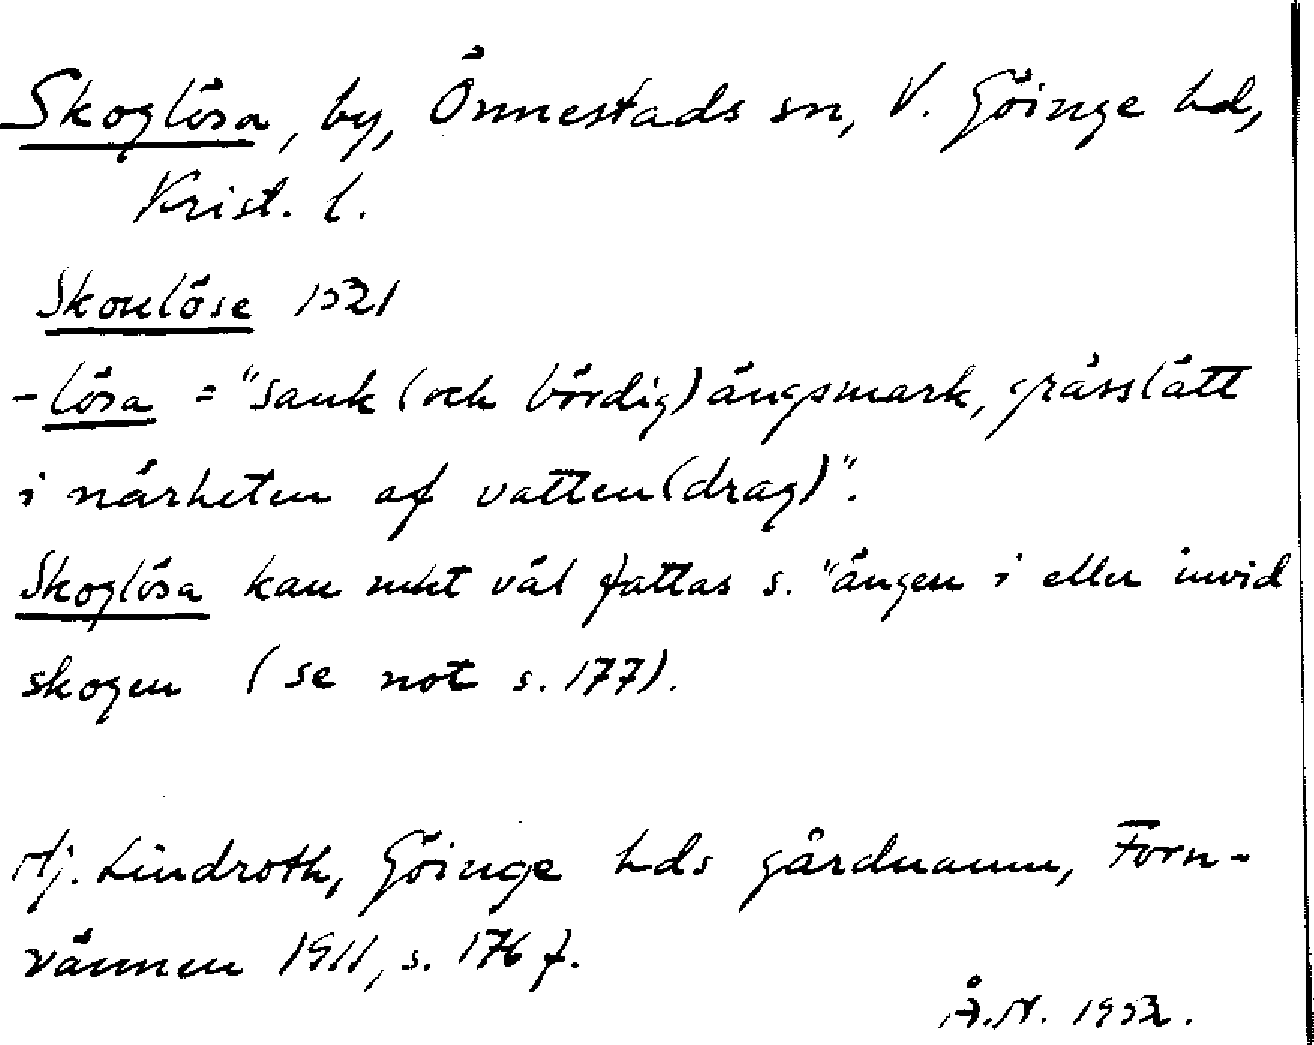 Skoglösa, by, Önnestads sn, V. Göinge hd,
Krist. l.
Skoulöse 1521
-lösa = "sank (och bördig) ängsmark, grässlätt
i närheten af vatten(drag)".
Skoglösa kan mkt väl fattas s. "ängen i eller invid
skogen (se not s. 177).
Hj. Lindroth, Göinge hds gårdnamn, Forn-
vännen 1911, s. 176 f.
Å.N. 1952.